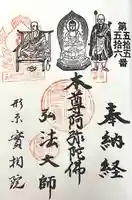 第五拾五番
第五拾六
奉納経
本尊阿弥陀佛
弘法大師
形原 實相院